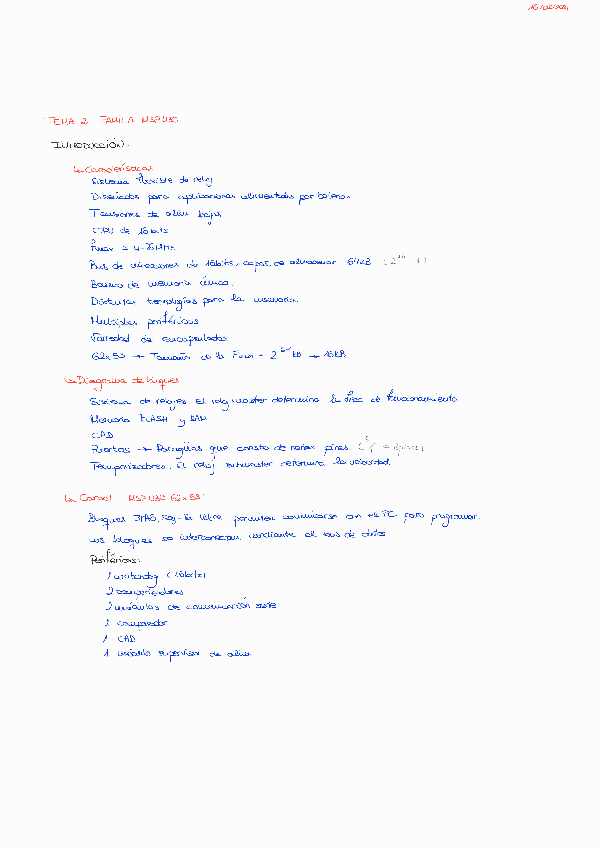 16/02/2021
TEMA 2 FAMILIA MSP430
INTRODUCCIÓN.
↳ Características
Sistema flexible de reloj
Diseñados para aplicaciones alimentadas por baterías
Tensiones de alim bajas
CPU de 16 bits
Fmax = 4-25 MHz
Bus de direcciones de 16 bits, capaz de almacenar 64kB
Banco de memoria único.
Distintas tecnologías para la memoria.
Multiples periféricos
Variedad de encapsulados
G2x53 → Tamaño de la Flash = kB → 16kB
↳ Diagrama de bloques
Sistema de relojes. El reloj master determina la frec de funcionamiento
Memoria FLASH y RAM
CAD
Puertos → Paragüas que consta de varios pines.
Temporizadores. El reloj submaster determina la velocidad.
↳ Consol MSP430 G2x53:
Bloques JTAG, Spy-Bi Wire permiten comunicarse con el PC para programar.
Los bloques se interconectan mediante el bus de datos
Periféricos:
1 watchdog (16bits)
2 temporizadores
2 módulos de comunicación serie
1 comparador
1 CAD
1 módulo supervisor de alim